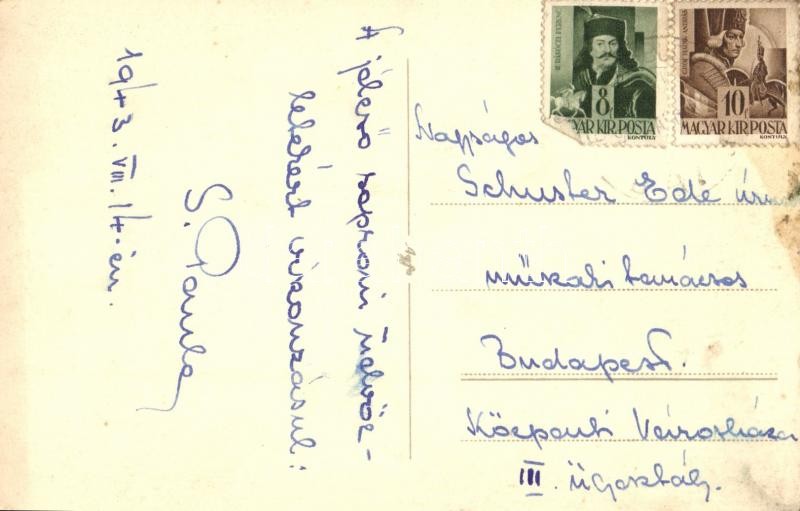 A jóleső soproni üdvöz-
letekért viszonzásul:
S. Paula
1943. VIII. 14-én.
II. RÁKÓCZI FERENC
8
MAGYAR KIR. POSTA
KONTULY
10f
MAGYAR KIR. POSTA
KONTULY
Nagyságos
Schuster Ede úrnak
műszaki tanácsos
Budapest.
Központi Városháza
III. ügyosztály.